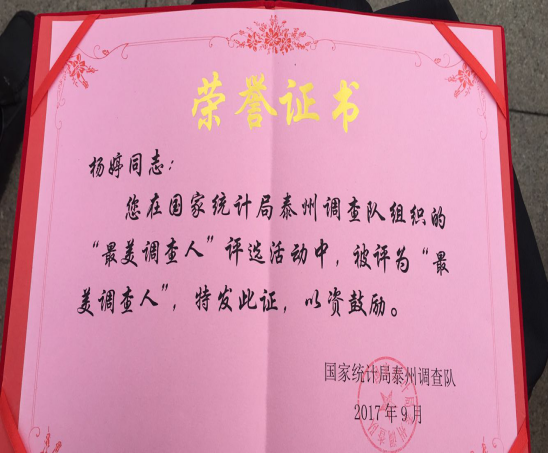 荣誉证书
杨婷同志：
您在国家统计局泰州调查队组织的
“最美调查人”评选活动中，被评为“最
美调查人”，特发此证，以资鼓励。
国家统计局泰州调查队
2017年9月